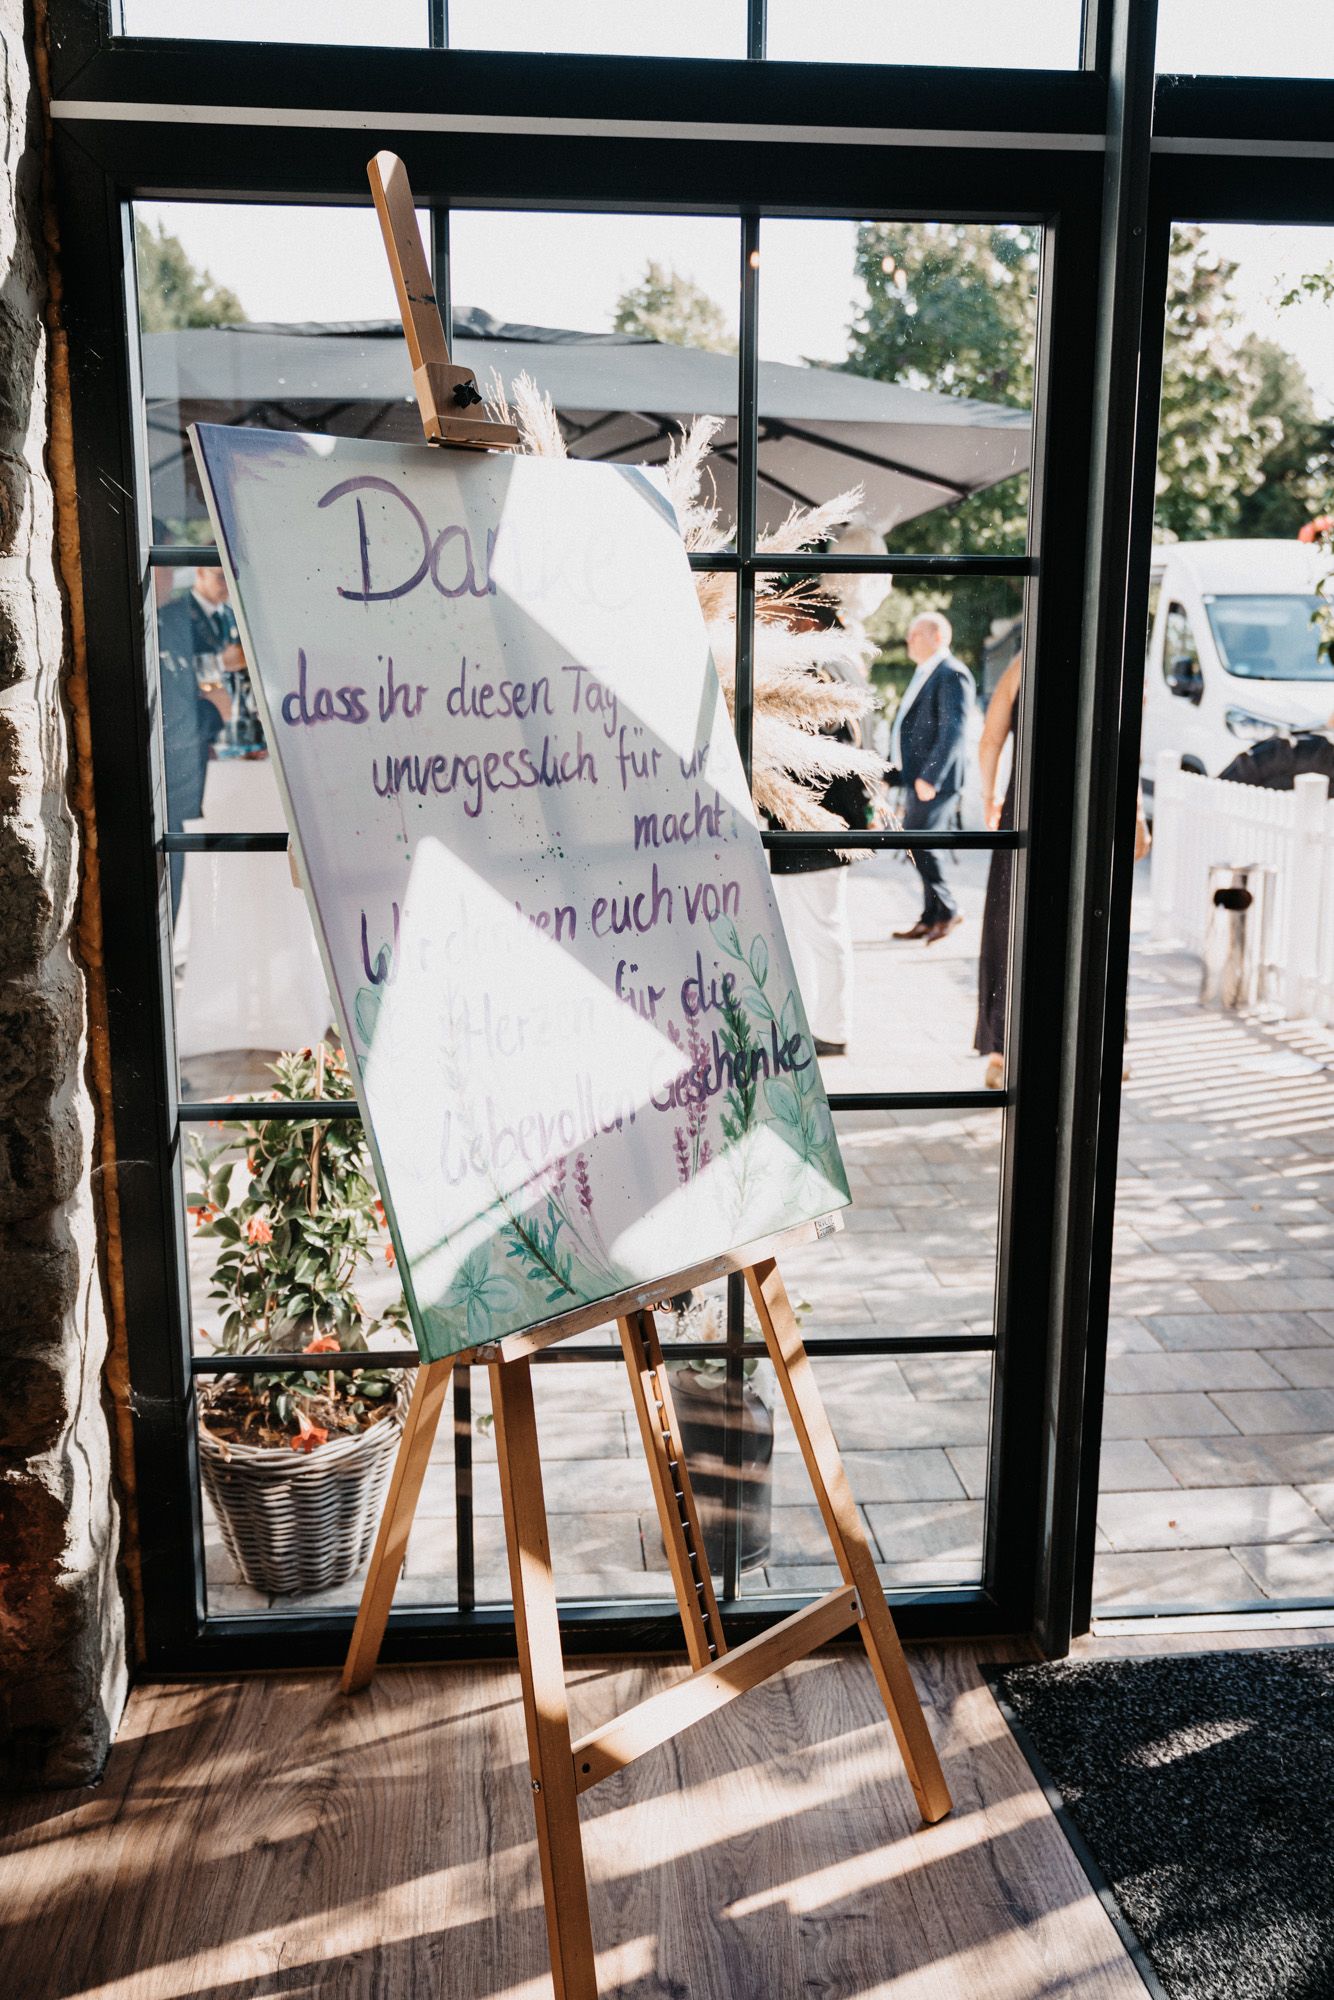 Danke
dass ihr diesen Tag
unvergesslich für uns
macht!
Wir danken euch von
Herzen für die
liebevollen Geschenke